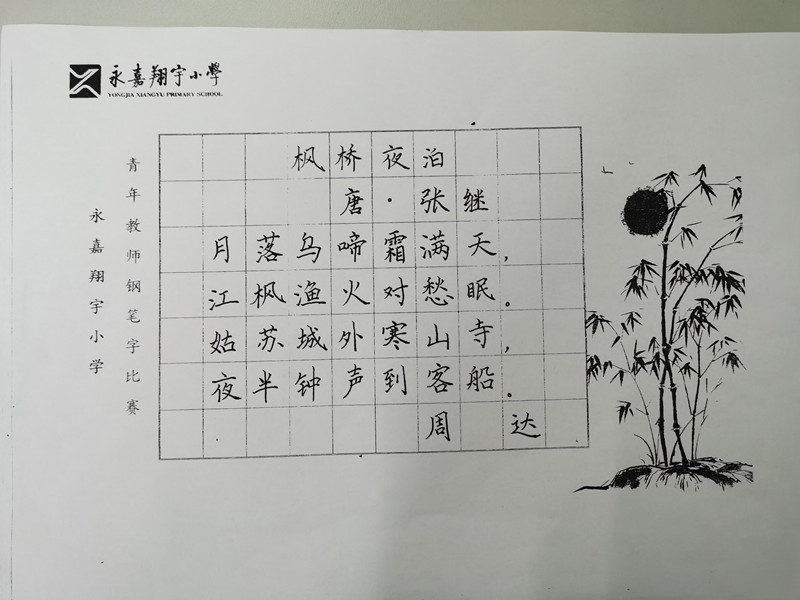 永嘉翔宇小學
YONGJIA XIANGYU PRIMARY SCHOOL
枫桥夜泊
唐·张继
月落乌啼霜满天，
江枫渔火对愁眠。
姑苏城外寒山寺，
夜半钟声到客船。
周达
青年教师钢笔字比赛
永嘉翔宇小学